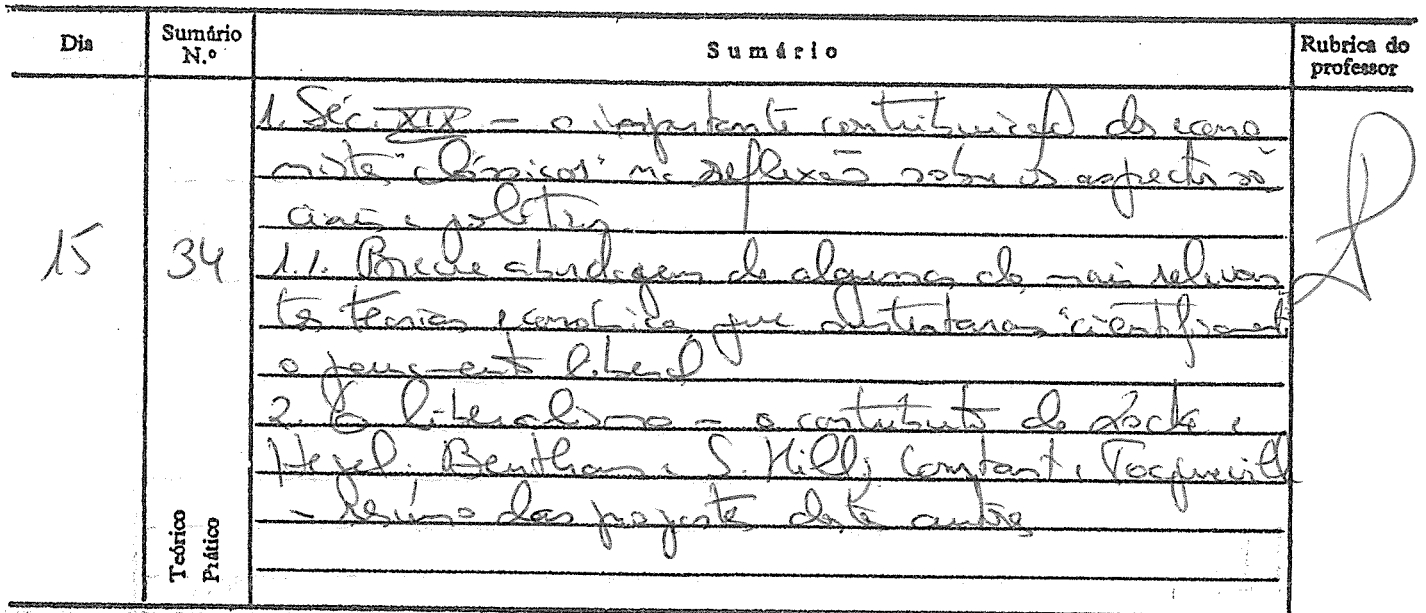 Dia
Sumário N.º
Sumário
Rubrica do professor
15
34
Teórico
Prático
1. Séc. XIX – o importante contribuição dos econo
mistas "clássicos" na reflexão sobre os aspectos só
ciais e políticos
1.1. Breve abordagem de algumas das mais relevan
tes teorias económicas que sustentaram "cientificament
o pensamento liberal
2. O liberalismo – o contributo de Locke e
Hegel. Bentham e S. Mill; Constant e Tocqueville
– resumo das propostas destes autores